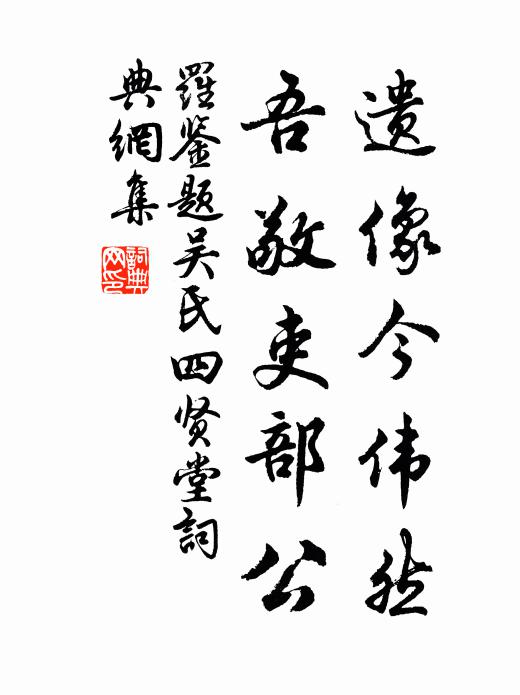 遗像今伟然
吾敬吏部公
羅鉴题吴氏四贤堂詞
典網集
詞典
网印